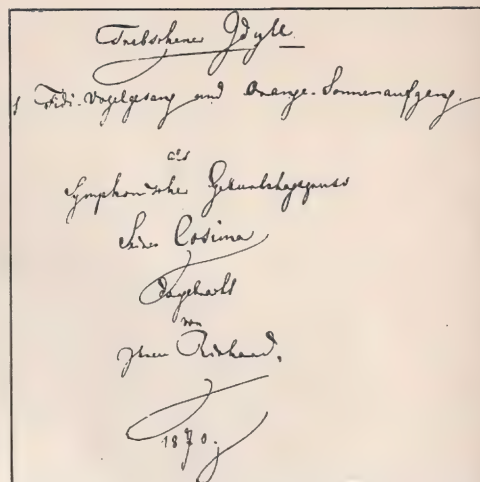 Tribschener Idyll
Fidi-Vogelgesang und Orange-Sonnenaufgang.
als
Symphonischer Geburtstagsgruss
Seiner Cosima
dargebracht
von
Ihrem Richard.
1870.